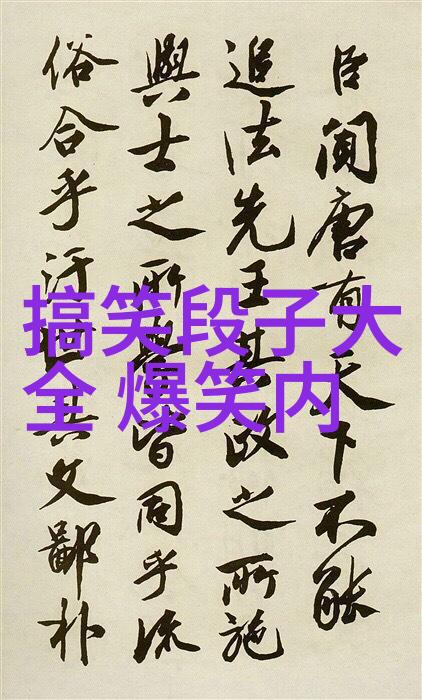 臣聞唐有天下不能
追法先王其政之所施
與士之所學皆同乎流
俗合乎汙世其文鄙朴
搞笑段子大
全 爆笑内